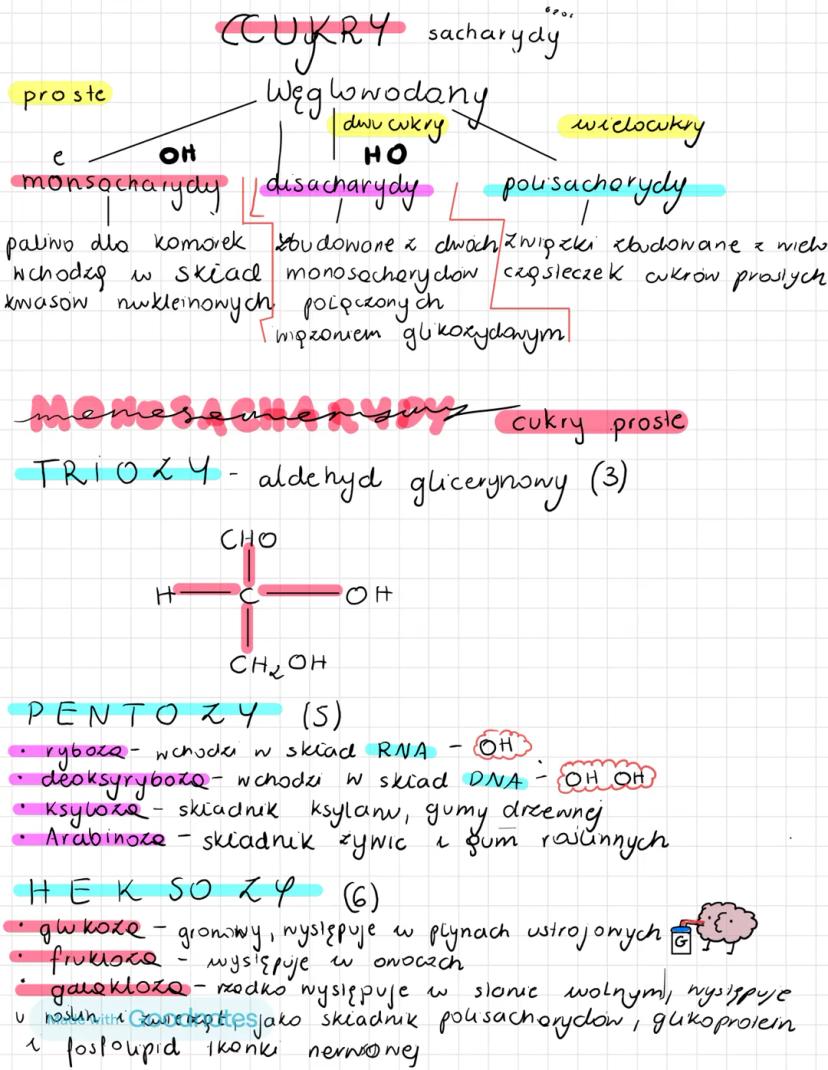 CUKRY sacharydy
proste
Węglowodany
dwucukry
wielocukry
e OH HO
monsacharydy disacharydy polisacharydy
paliwo dla komórek
wchodzą w skład
kwasów nukleinowych
zbudowane z dwóch
monosacharydów
połączonych
wiązaniem glikozydowym
związki zbudowane z wielu
cząsteczek cukrów prostych
cukry proste
TRiOZY - aldehyd glicerynowy (3)
CHO
H C OH
CH2OH
PENTOZY (5)
• ryboza - wchodzi w skład RNA - OH
• deoksyryboza - wchodzi w skład DNA - OH OH
• Ksyloza - składnik ksylanu, gumy drzewnej
• Arabinoza - składnik żywic i gum roślinnych
HEKSOZY (6)
• glukoza - gronowy, występuje w płynach ustrojowych
G
• fruktoza - występuje w owocach
• galaktoza - rzadko występuje w stanie wolnym, występuje
u roślin i zwierząt jako składnik polisacharydów, glikoprotein
i fosfolipid tkanki nerwowej
Made with Goodnotes